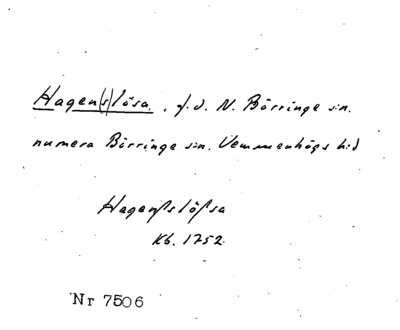 Hagen(s)lösa, f.d. N. Börringe sn.
numera Börringe sn. Vemmenhögs hd
Hagenßlößa
Kb. 1752
Nr 7506